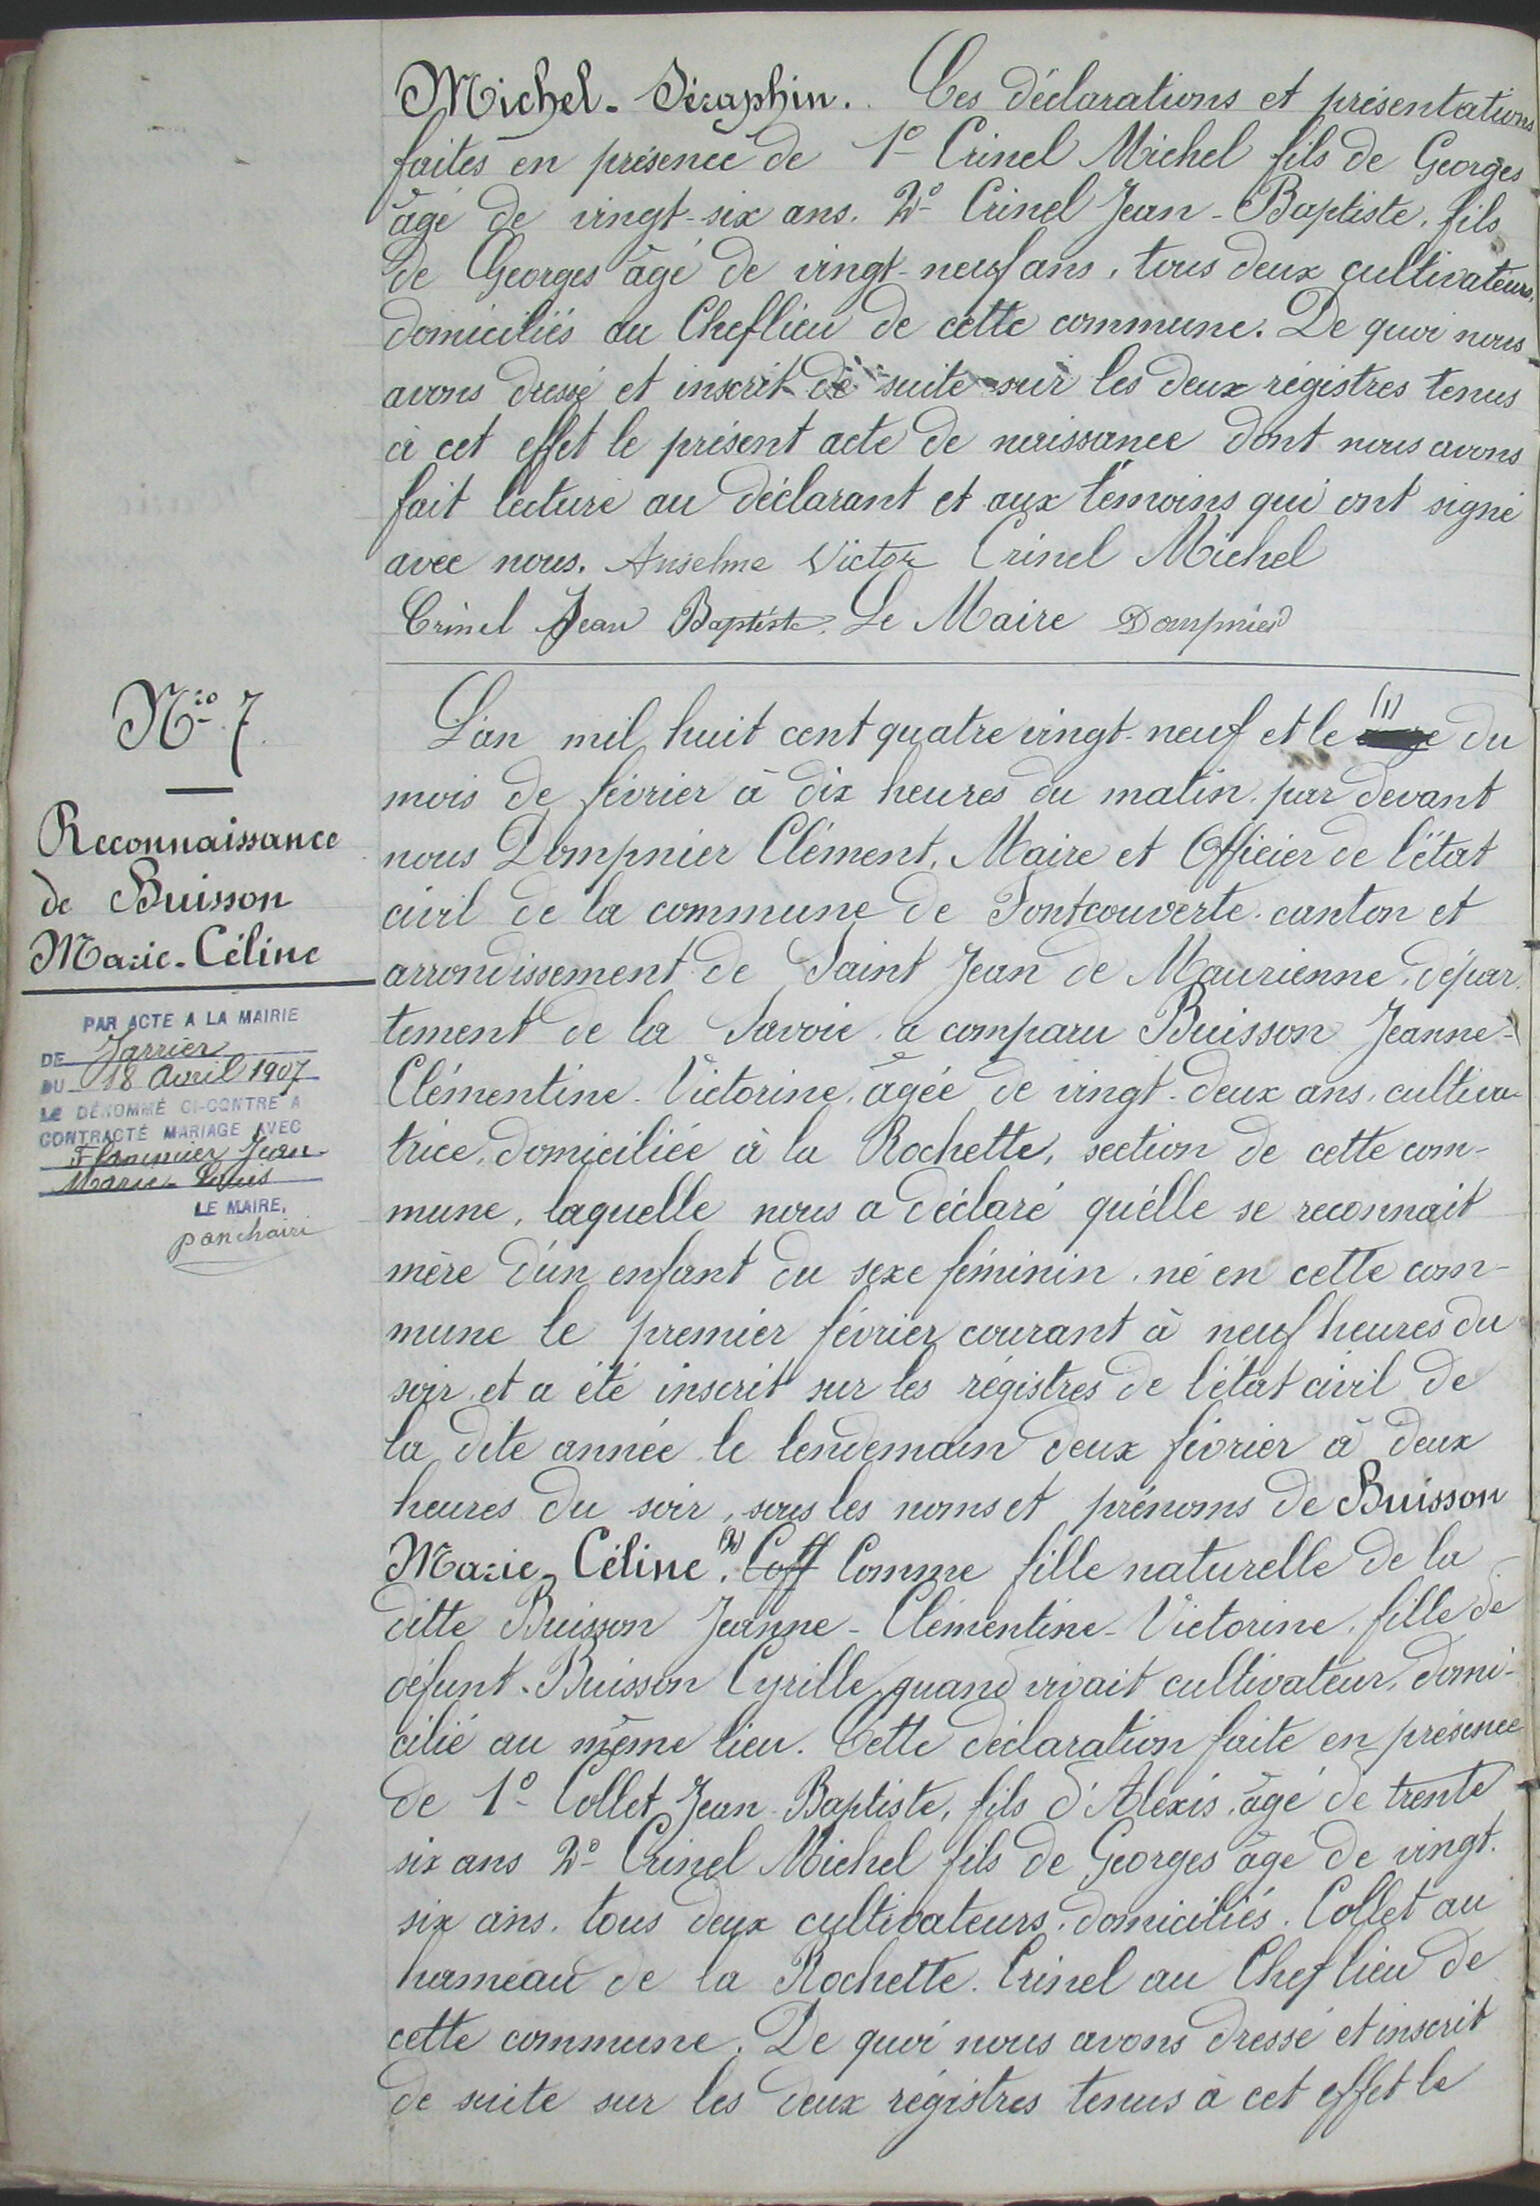 Michel-Séraphin. Ces déclarations et présentations
faites en présence de 1° Crinel Michel fils de Georges
âgé de vingt-six ans. 2° Crinel Jean-Baptiste, fils
de Georges âgé de vingt-neuf ans, tous deux cultivateurs,
domiciliés au Cheflieu de cette commune. De quoi nous
avons dressé et inscrit de suite sur les deux régistres tenus
à cet effet le présent acte de naissance dont nous avons
fait lecture au déclarant et aux témoins qui ont signé
avec nous. Anselme Victor Crinel Michel
Crinel Jean Baptiste. Le Maire Dompnier
N° 7
Reconnaissance
de Buisson
Marie-Céline
PAR ACTE A LA MAIRIE
DE Jarrier
DU 18 Avril 1907
LE DÉNOMMÉ CI-CONTRE A
CONTRACTÉ MARIAGE AVEC
Flammier Jean-
Marie-Louis
LE MAIRE,
L'an mil huit cent quatre vingt-neuf et le (1) du
mois de février à dix heures du matin, par devant
nous Dompnier Clément, Maire et Officier de l'état
civil de la commune de Fontcouverte, canton et
arrondissement de Saint Jean de Maurienne, dépar
tement de la Savoie, a comparu Buisson Jeanne-
Clémentine-Victorine, âgée de vingt-deux ans, cultiva
trice, domiciliée à la Rochette, section de cette com-
mune, laquelle nous a déclaré qu'elle se reconnait
mère d'un enfant du sexe féminin, né en cette com-
mune le premier février courant à neuf heures du
soir et a été inscrit sur les régistres de l'état civil de
la dite année le lendemain deux février à deux
heures du soir, sous les noms et prénoms de Buisson
Marie-Céline (2). Coff Comme fille naturelle de la
ditte Buisson Jeanne-Clémentine-Victorine, fille de
défunt Buisson Cyrille, quand vivait cultivateur, domi-
cilié au même lieu. Cette déclaration faite en présence
de 1° Collet Jean-Baptiste, fils d'Alexis, âgé de trente
six ans 2° Crinel Michel fils de Georges âgé de vingt-
six ans, tous deux cultivateurs, domiciliés, Collet au
hameau de la Rochette. Crinel au Cheflieu de
cette commune. De quoi nous avons dressé et inscrit
de suite sur les deux régistres tenus à cet effet le